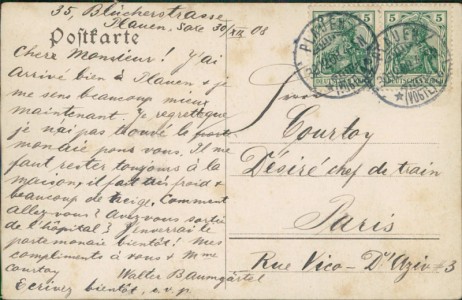 35, Blücherstrasse
Plauen, Sale 30/XII 08
Postkarte
Cher Monsieur! J'ai
arrivé bien à Plauen & je
me sens beaucoup mieux
maintenant. Je regrette que
je n'ai pas trouvé le porte
monaie pour vous. Il me
faut rester toujours à la
maison, il fait très froid &
beaucoup de neige. Comment
allez vous? Avez vous sorti
de l'hôpital? J'enverrai le
porte monaie bientôt! Mes
compliments à vous & Mme
Courtoy
Walter Baumgärtel
Ecrivez bientôt, s.v.p.
5 5
PLAUEN
(VOGTL.)
DEUTSCHES REICH
Courtoy
Désiré chef de train
Paris
Rue Vico-D'Azir #3